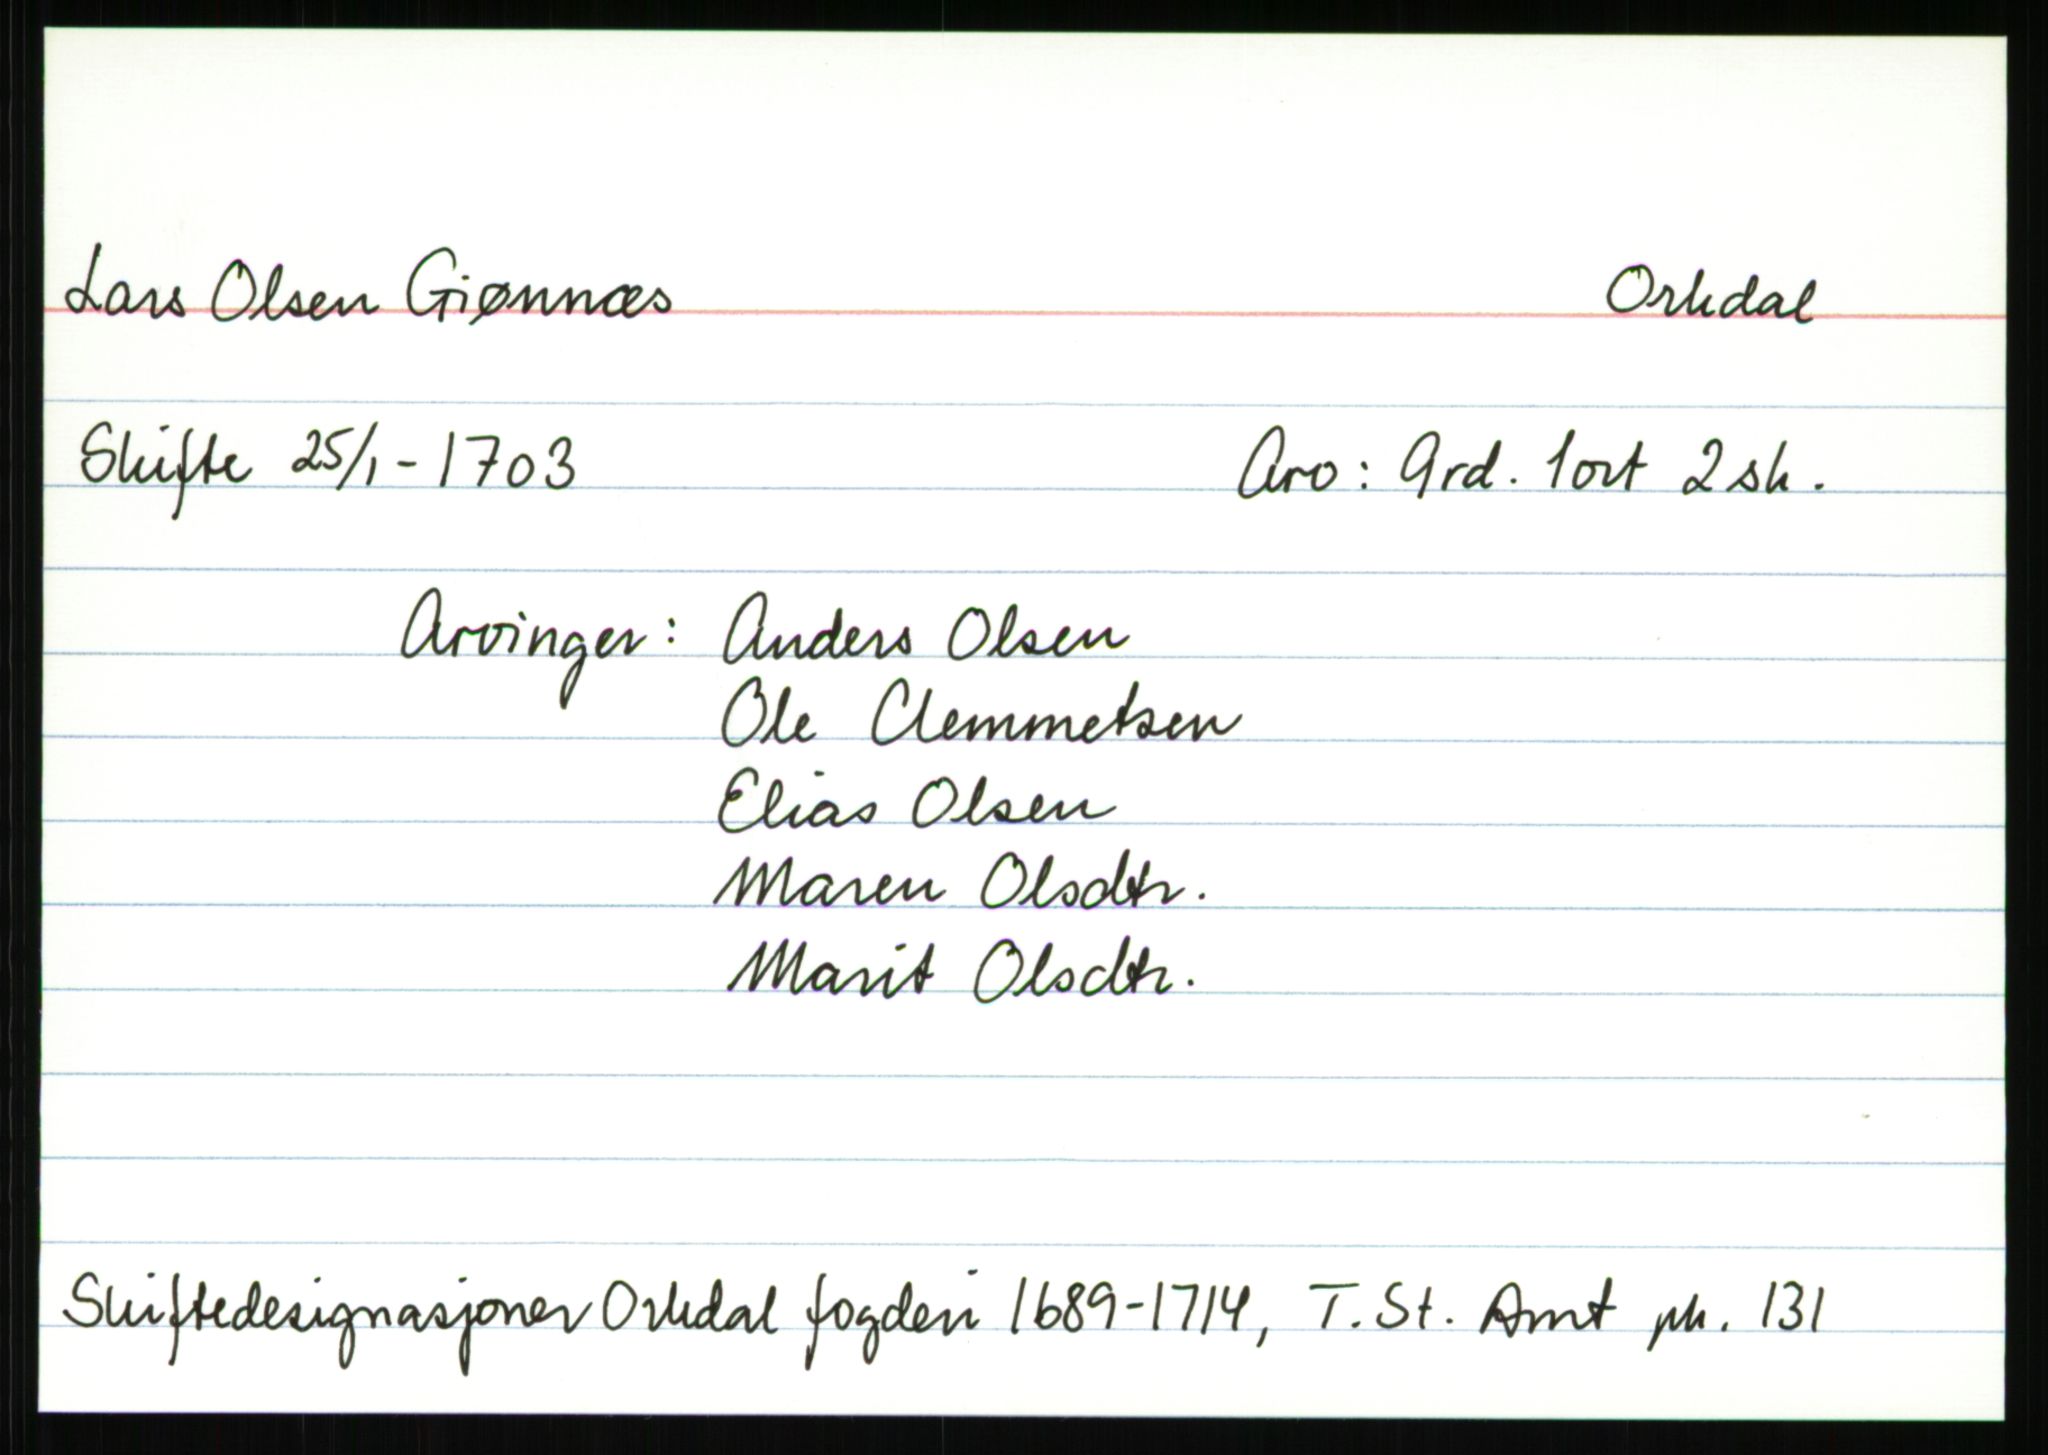 Lars Olsen Giønnæs Orkdal
Skifte 25/1-1703 Arv: 9rd. 1ort 2sk.
Arvinger: Anders Olsen
Ole Clemmetsen
Elias Olsen
Maren Olsdtr.
Marit Olsdtr.
Skiftedesignasjoner Orkdal fogderi 1689-1714, T. St. Amt pk. 131